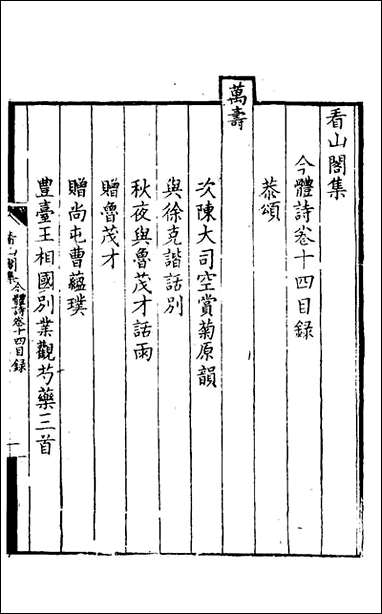 看山閣集
今體詩卷十四目録
恭頌
萬壽
次陳大司空賞菊原韻
與徐克諧話別
秋夜與魯茂才話雨
贈魯茂才
贈尚屯曹蘊璞
豊臺王相國別業觀芍藥三首
看山閣集 今體詩卷十四目録 一